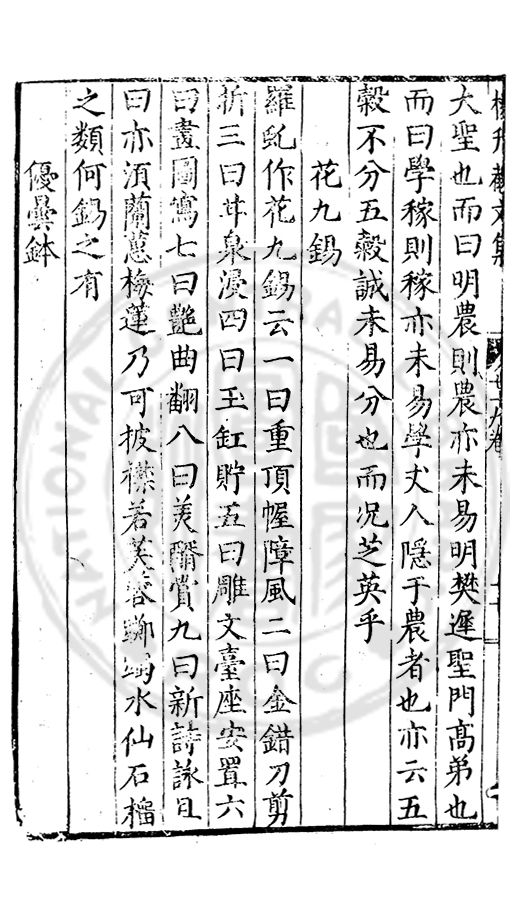 大聖也而曰明農則農亦未易明樊遲聖門高弟也
而曰學稼則稼亦未易學丈人隱于農者也亦云五
穀不分五穀誠未易分也而况芝英乎
花九錫
羅虬作花九錫云一曰重頂幄障風二曰金錯刀剪
折三曰甘泉浸四曰玉缸貯五曰雕文臺座安置六
曰畫圖寫七曰艶曲翻八曰美醑賞九曰新詩詠且
曰亦須蘭蕙梅蓮乃可披襟若芙蓉躑躅水仙石榴
之類何錫之有
優曇鉢